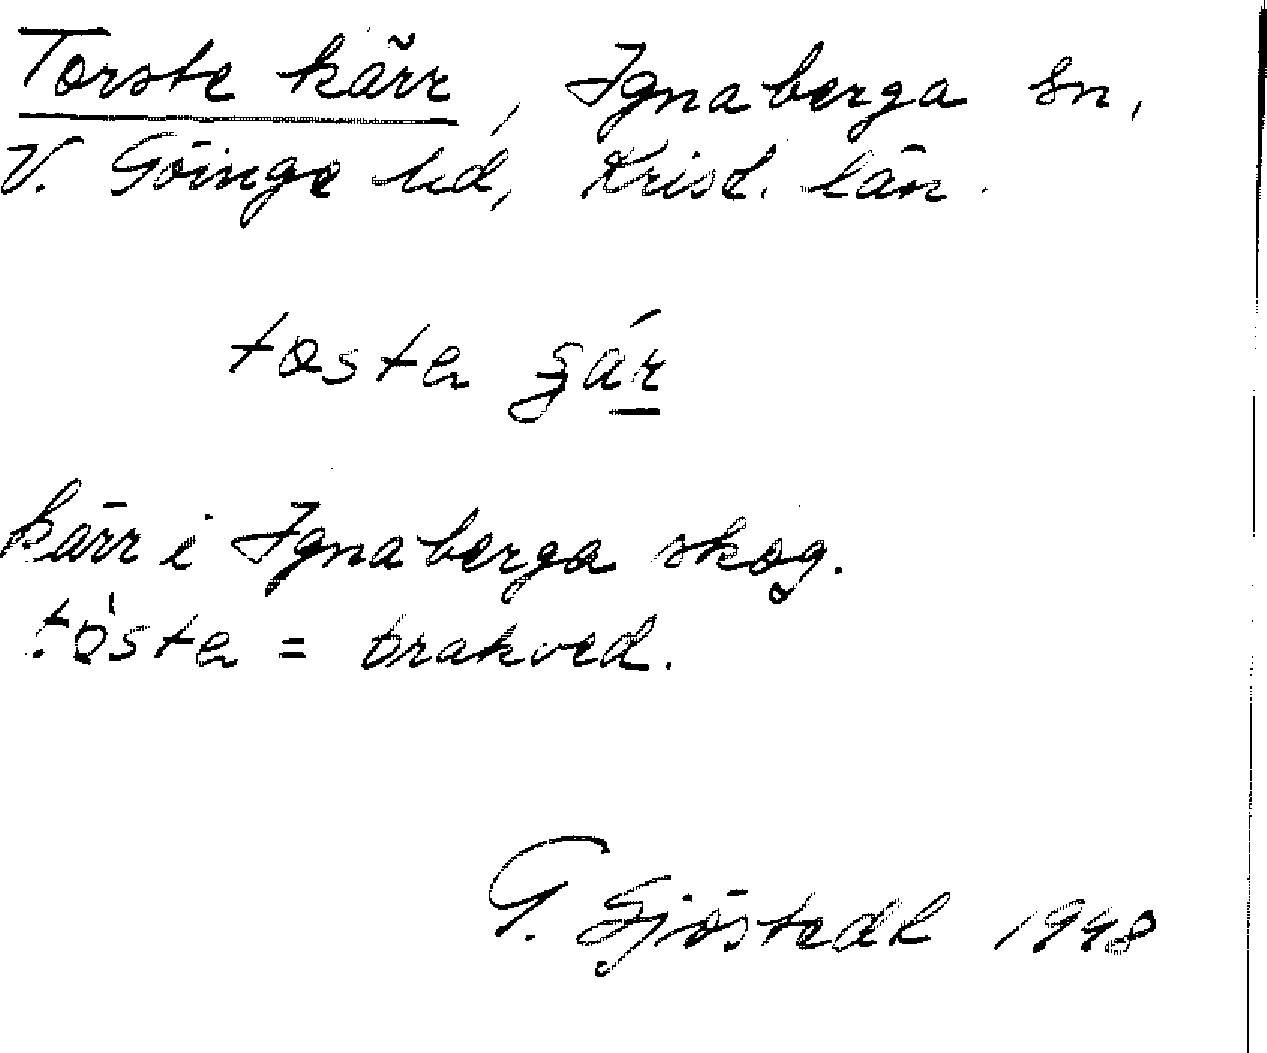 Torste kärr, Ignaberga sn,
V. Göinge hd, Krist. län.
tostɐ ʂár
kärr i Ignaberga skog.
tòstɐ = brakved.
G. Sjöstedt 1948